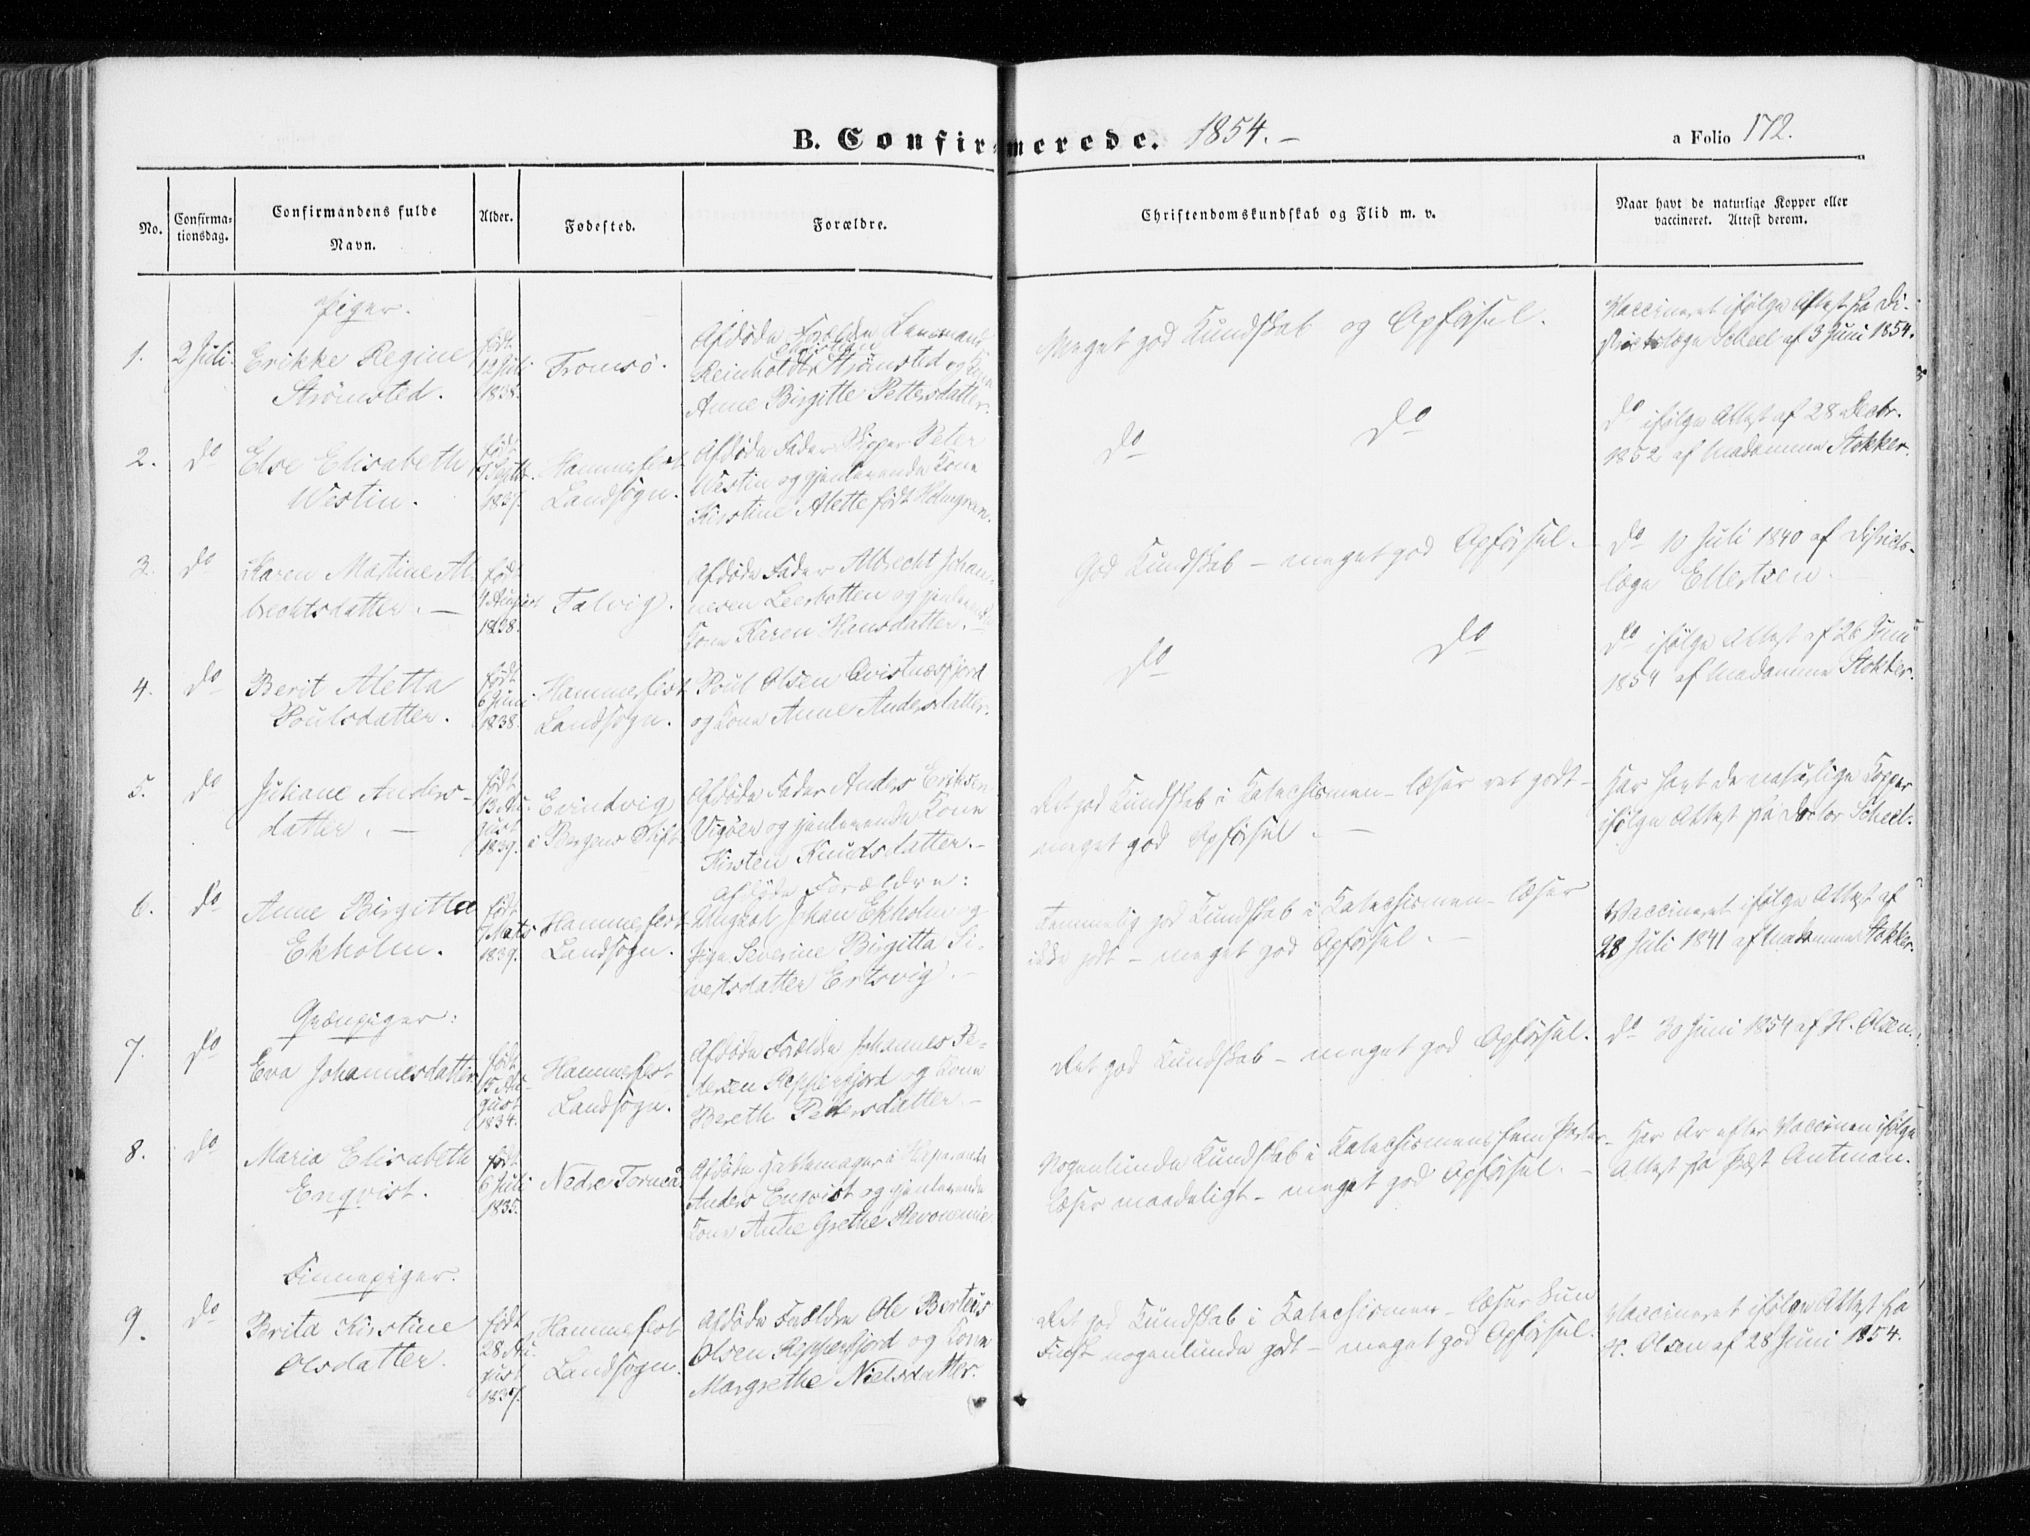 B. Confirmerede. 1854.-
a Folio 172.
No.
Confirma-
tionsdag.
Confirmandens fulde
Navn.
Alder.
Fødested.
Forældre.
Christendomskundskab og Flid m. v.
Naar havt de naturlige Kopper eller
vaccineret. Attest derom.
Piger.
1. 2 Juli. Erikke Regine
Strømsted.
født
12 Juli
1838.
Tromsø.
Afdøde Forældre Lensmand
Reinholdt Christian Strømsted og Kone
Anne Birgitte Pettersdatter.
Meget god Kundskab og Opførsel.
Vaccineret ifølge Attest fra Di-
strictslæge Scheel af 3 Juni 1854.
2. do Else Elisabeth
Westin.
født
1837.
Hammerfest
Landsogn.
Afdøde Fader Peter
Westin og gjenlevende Kone
Kirstine Alette født Holmgreen.
do do
do ifølge Attest af 28 Decbr.
1852 af Madamme Stokker.
3. do Karen Martine Al-
brechtsdatter. -
født
4 August
1838.
Talvig.
Afdøde Fader Albrecht Johan-
nesen Leerbotten og gjenlevende
Kone Karen Hansdatter. -
God Kundskab - meget god Opførsel.
do 10 Juli 1840 af Districts-
læge Ellertsen. -
4. do Berit Aletta
Poulsdatter.
født
6 Juni
1838.
Hammerfest
Landsogn.
Poul Olsen Qvistnesfjord
og Kone Anne Andersdatter.
do do
do ifølge Attest af 26 Juni
1854 af Madamme Stokker.
5. do Juliane Anders-
datter. -
født
13 Au-
gust
1839.
Evindvig
i Bergens Stift
Afdøde Fader Anders Eriksen
Vigøer og gjenlevende Kone
Kirsten Knudsdatter. -
Ret god Kundskab i Katechismen - læser ret godt -
meget god Opførsel. -
Har havt de naturlige Kopper
ifølge Attest fra Doctor Scheel.
6. do Anne Birgitta
Ekholm.
født
Marts
1839.
Hammerfest
Landsogn.
Afdøde Forældre:
Ungkarl Johan Ekholm og
Pige Severine Birgitta Si-
vertsdatter Ertsvig. -
Temmelig god Kundskab i Katechismen - læser
ikke godt - meget god Opførsel. -
Vaccineret ifølge Attest af
28 Juli 1841 af Madamme Stokker.
Qvænpiger:
7. do Eva Johannesdatter
født
15 Au-
gust
1834.
Hammerfest
Landsogn.
Afdøde Forældre Johannes Pe-
dersen Repperfjord og Kone
Bereth Pedersdatter. -
Ret god Kundskab - meget god Opførsel.
do 30 Juni 1854 af H. Olsen.
8. do Maria Elisabeth
Enqvist.
født
6 Juli
1835.
Nedre Torneå
Afdøde i Haparanda
Anders Enqvist og gjenlevende
Kone Anne Grethe
Nogenlunde Kundskab i Katechismens fem Parter -
læser maadeligt - meget god Opførsel. -
Har Ar efter Vaccinen ifølge
Attest fra Præst Antman.
Finnepiger.
9. do Brita Kirstine
Olsdatter.
født
28 Au-
gust
1837.
Hammerfest
Landsogn.
Afdøde Forældre Ole Berteus
Olsen Repperfjord og Kone
Margrethe Nielsdatter.
Ret god Kundskab i Katechismen - læser kun
Finsk nogenlunde godt - meget god Opførsel.
Vaccineret ifølge Attest fra
H. Olsen af 28 Juni 1854.